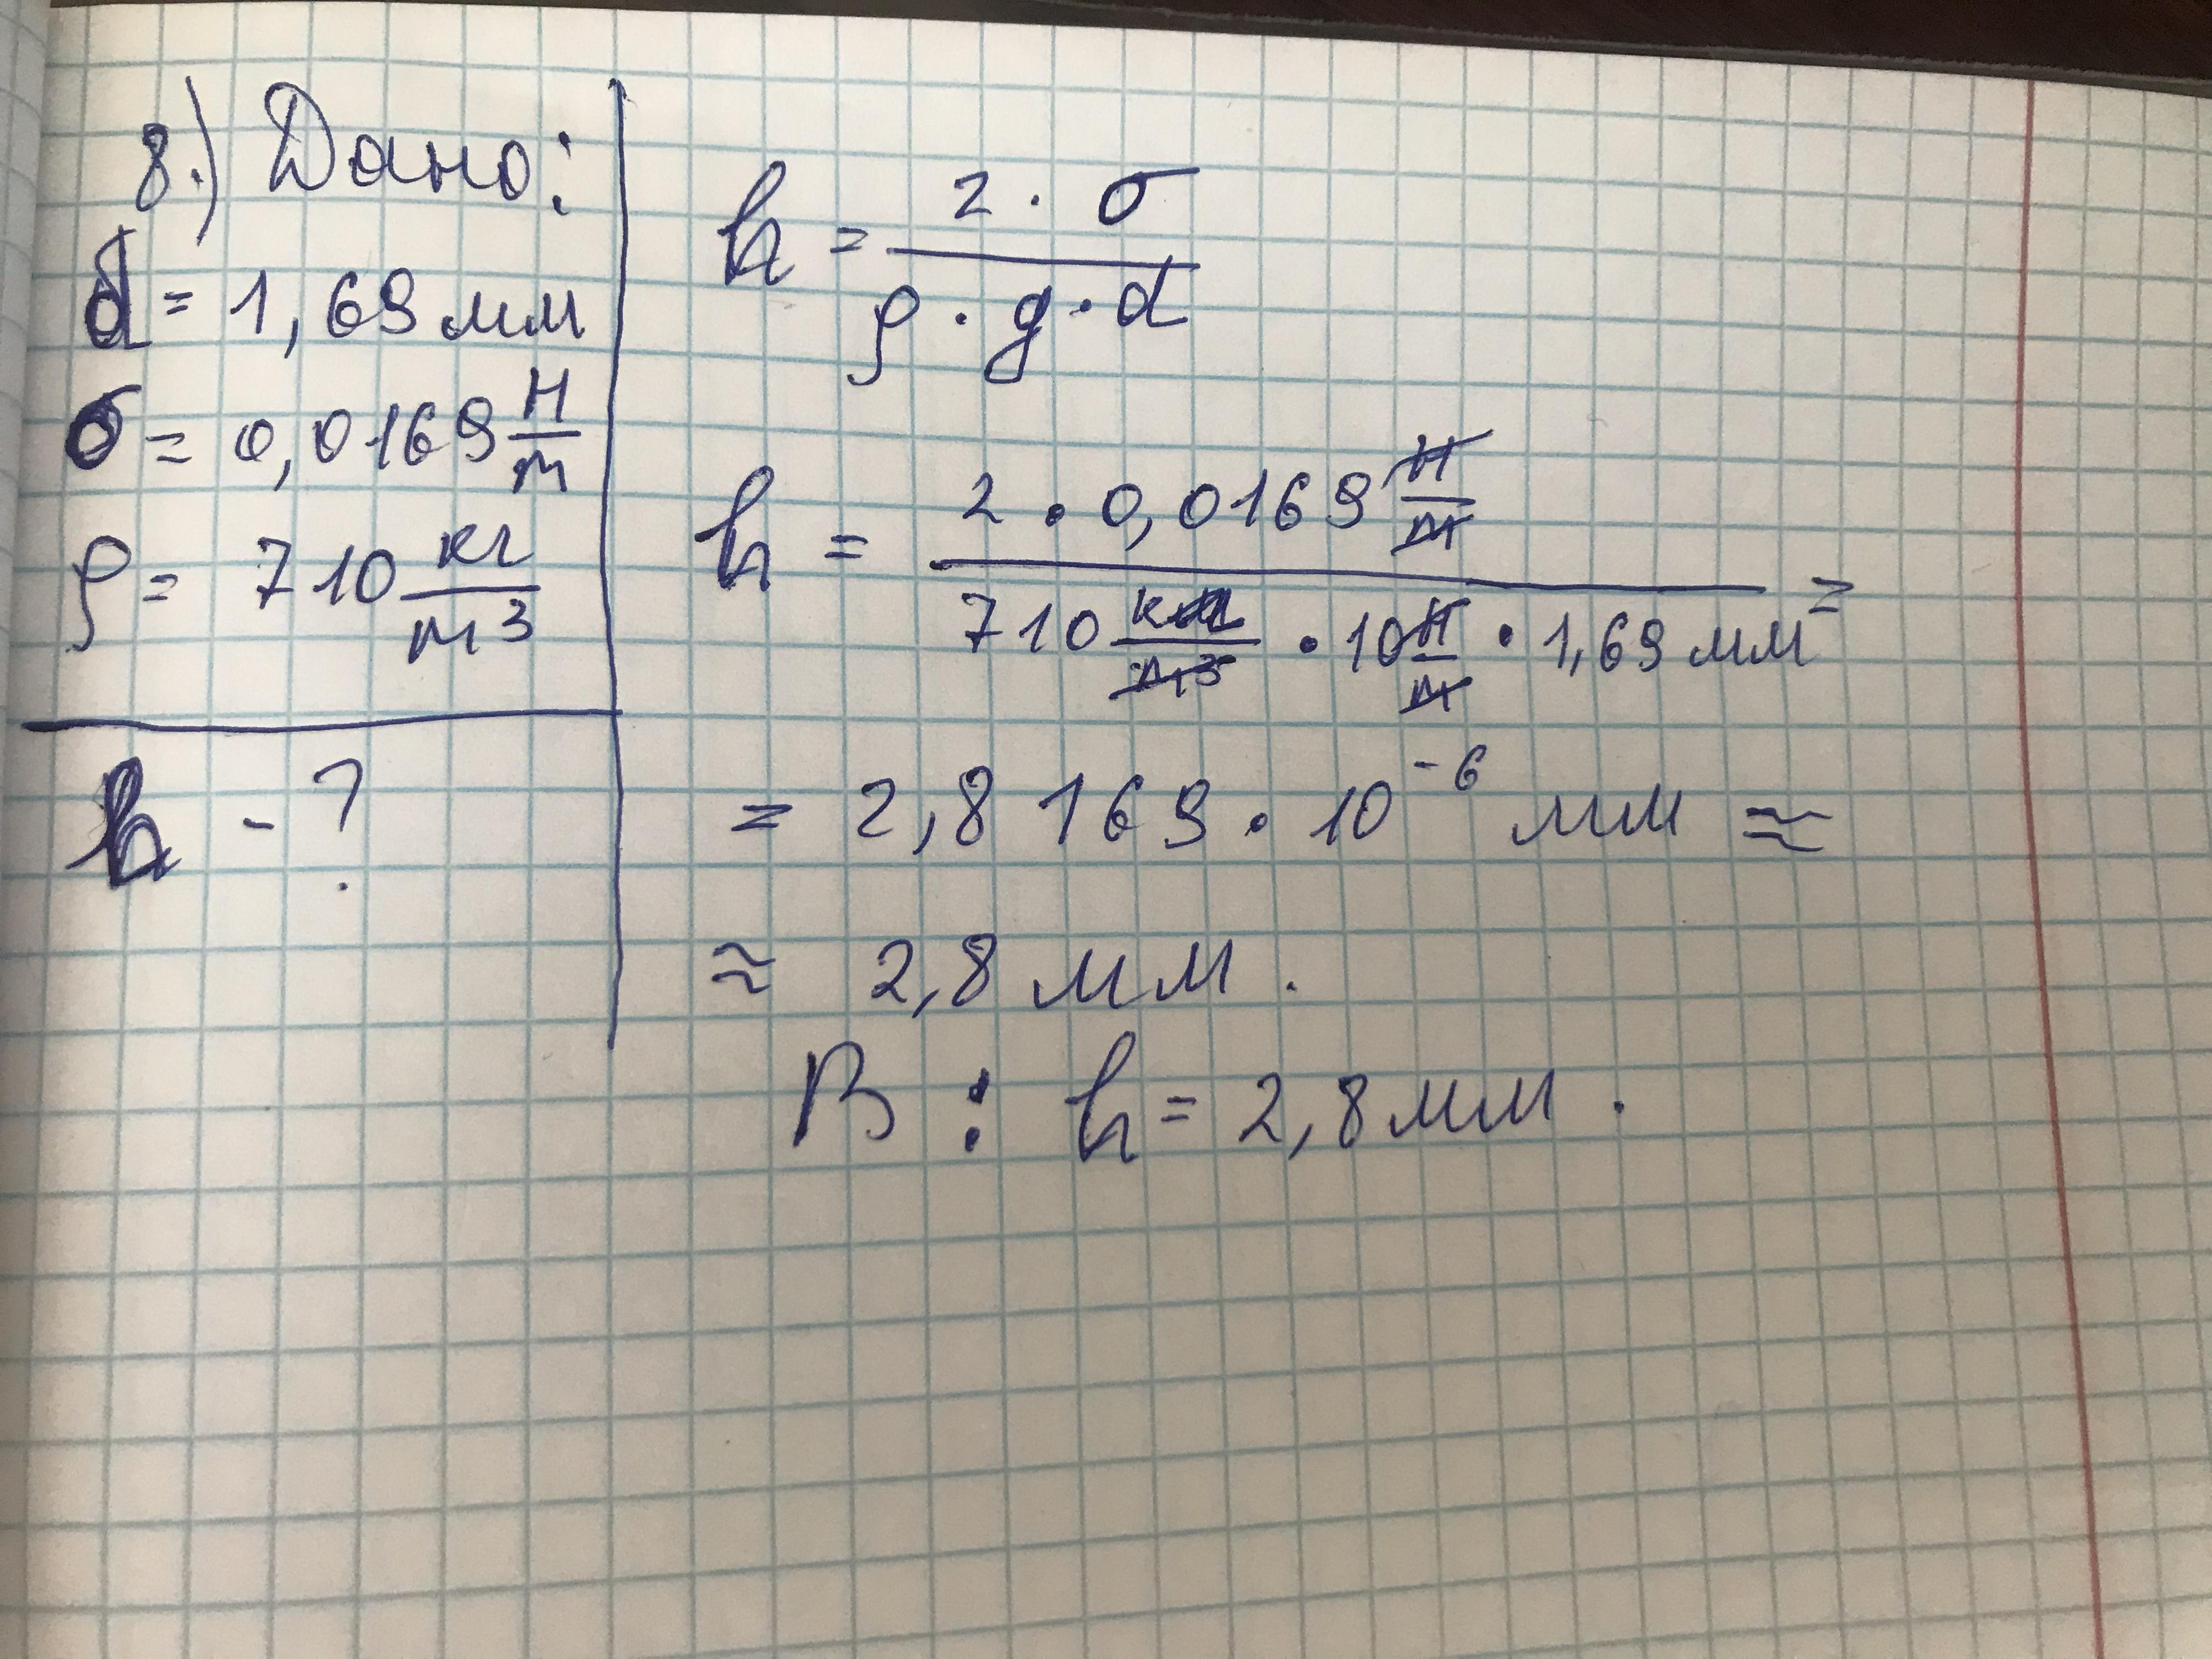 8.) Дано:
d = 1,69 мм
σ = 0,0169 Н/м
ρ = 710 кг/м³
h - ?
h = 2 · σ / ρ · g · d
h = 2 · 0,0169 Н/м / 710 кг/м³ · 10 Н/м · 1,69 мм =
= 2,8169 · 10⁻⁶ мм ≈
≈ 2,8 мм.
В : h = 2,8 мм.